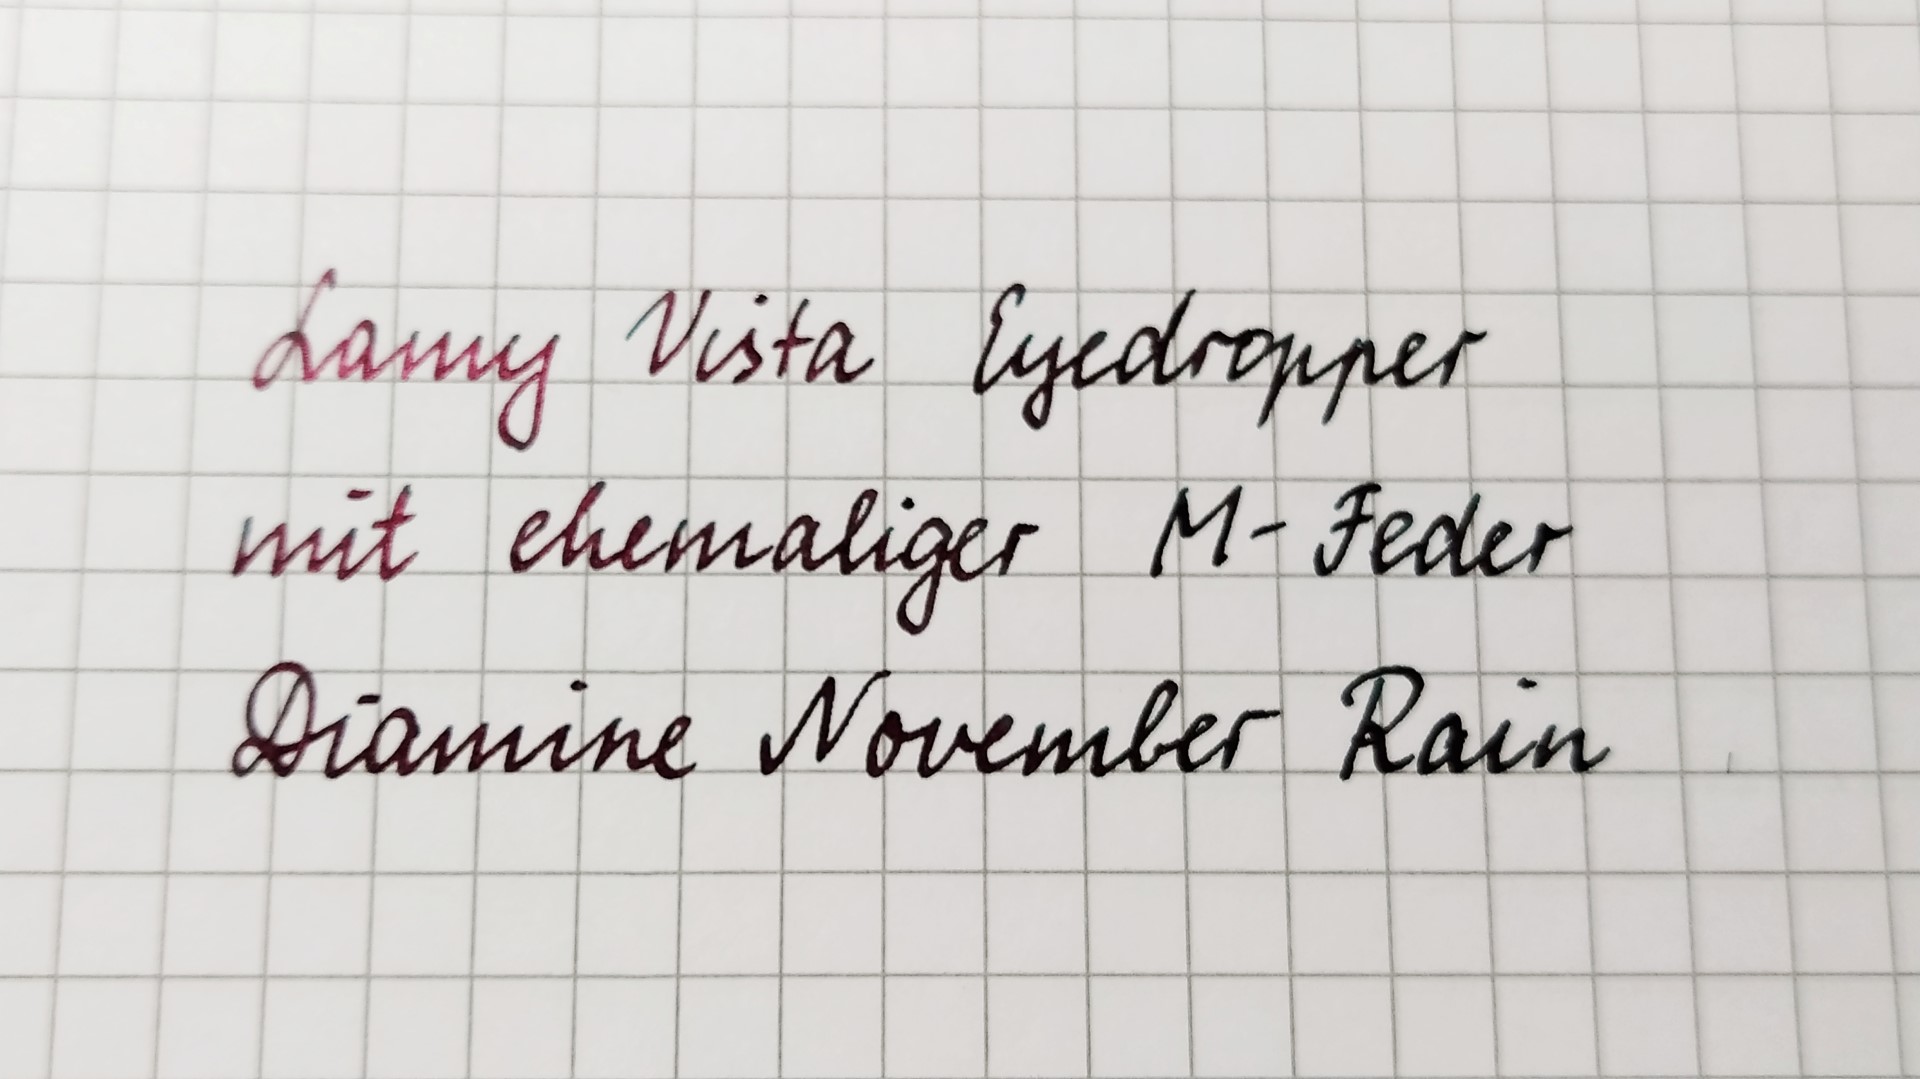 Lamy Vista Eyedropper
mit ehemaliger M-Feder
Diamine November Rain